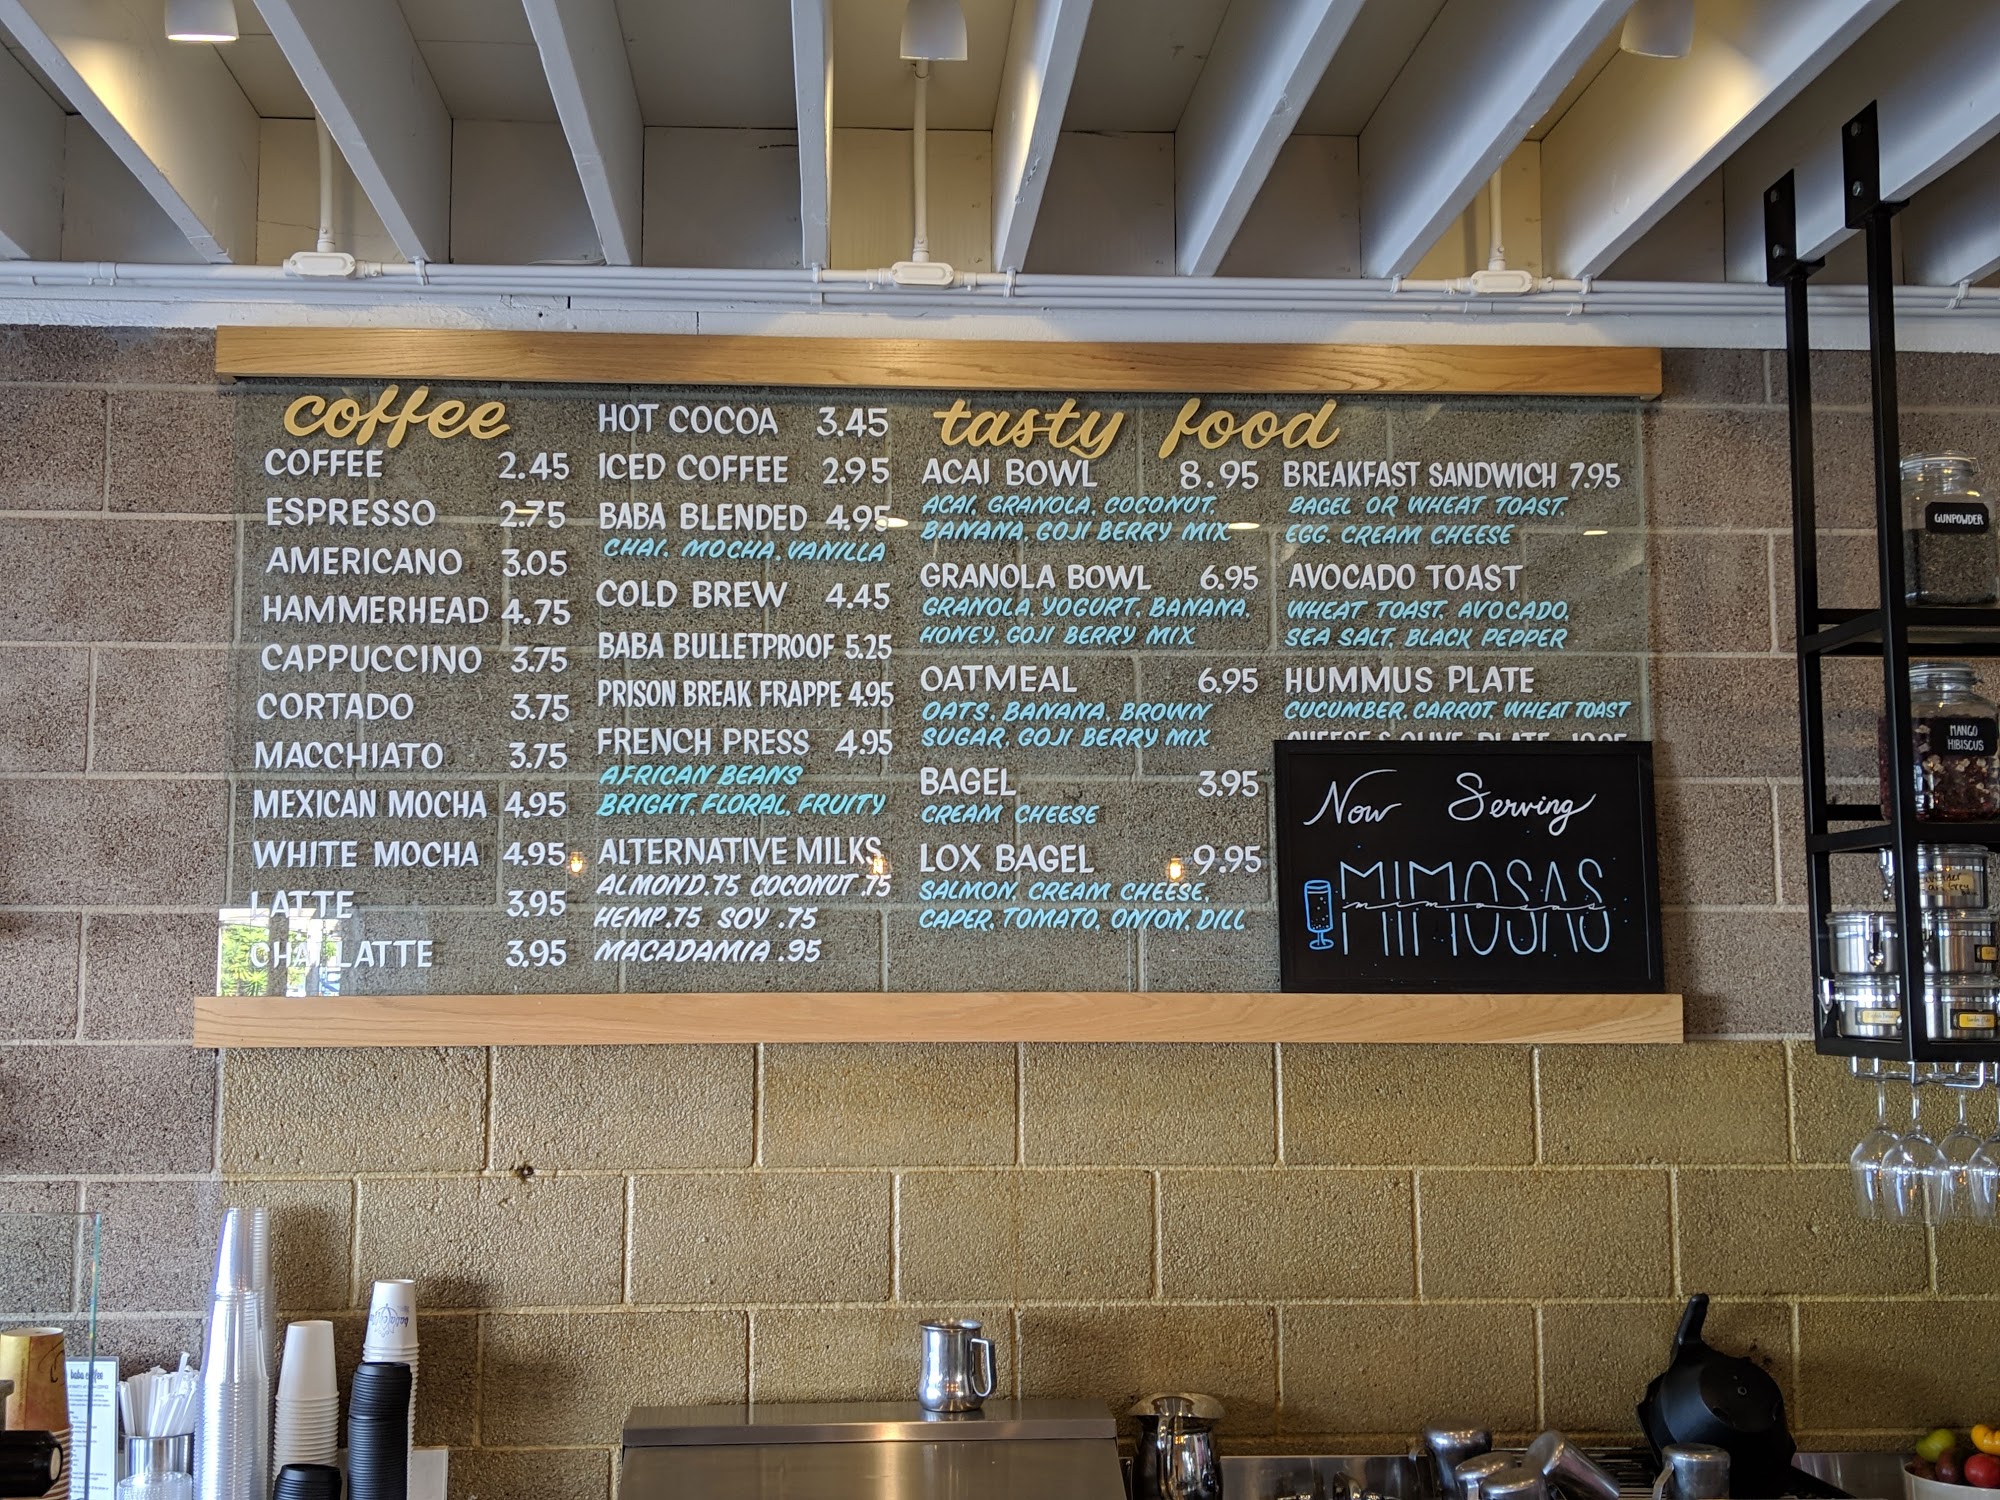 coffee
COFFEE 2.45
ESPRESSO 2.75
AMERICANO 3.05
HAMMERHEAD 4.75
CAPPUCCINO 3.75
CORTADO 3.75
MACCHIATO 3.75
MEXICAN MOCHA 4.95
WHITE MOCHA 4.95
LATTE 3.95
CHAI LATTE 3.95
HOT COCOA 3.45
ICED COFFEE 2.95
BABA BLENDED 4.95
CHAI, MOCHA, VANILLA
COLD BREW 4.45
BABA BULLETPROOF 5.25
PRISON BREAK FRAPPE 4.95
FRENCH PRESS 4.95
AFRICAN BEANS
BRIGHT, FLORAL, FRUITY
ALTERNATIVE MILKS
ALMOND .75 COCONUT .75
HEMP .75 SOY .75
MACADAMIA .95
tasty food
ACAI BOWL 8.95
ACAI, GRANOLA, COCONUT,
BANANA, GOJI BERRY MIX
GRANOLA BOWL 6.95
GRANOLA, YOGURT, BANANA,
HONEY, GOJI BERRY MIX
OATMEAL 6.95
OATS, BANANA, BROWN
SUGAR, GOJI BERRY MIX
BAGEL 3.95
CREAM CHEESE
LOX BAGEL 9.95
SALMON, CREAM CHEESE,
CAPER, TOMATO, ONION, DILL
BREAKFAST SANDWICH 7.95
BAGEL OR WHEAT TOAST,
EGG, CREAM CHEESE
AVOCADO TOAST
WHEAT TOAST, AVOCADO,
SEA SALT, BLACK PEPPER
HUMMUS PLATE
CUCUMBER, CARROT, WHEAT TOAST
CHEESE & OLIVE PLATE
Now Serving
MIMOSAS
mimosas
GUNPOWDER
MANGO
HIBISCUS
baba coffee